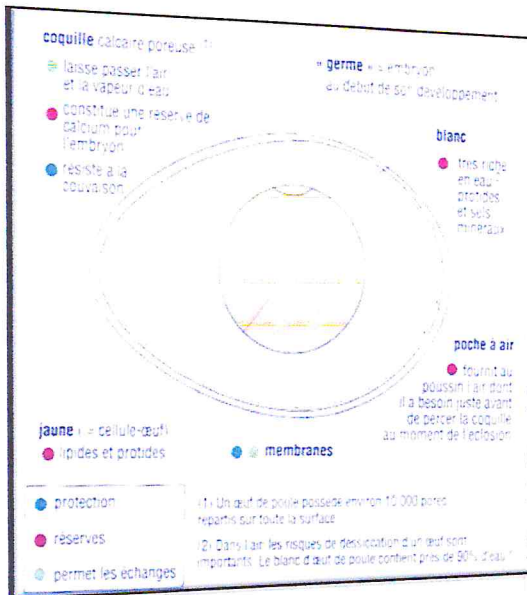 coquille calcaire poreuse (1)
laisse passer l'air
et la vapeur d'eau
constitue une réserve de
calcium pour
l'embryon
résiste à la
couvaison
« germe » = embryon
au début de son développement
blanc
très riche
en eau (2)
protides
et sels
minéraux
poche à air
fournit au
poussin l'air dont
il a besoin juste avant
de percer la coquille
au moment de l'éclosion
jaune ( = cellule-œuf)
lipides et protides
membranes
protection
réserves
permet les échanges
(1) Un œuf de poule possède environ 10 000 pores
répartis sur toute la surface
(2) Dans l'air les risques de dessiccation d'un œuf sont
importants. Le blanc d'œuf de poule contient près de 90% d'eau